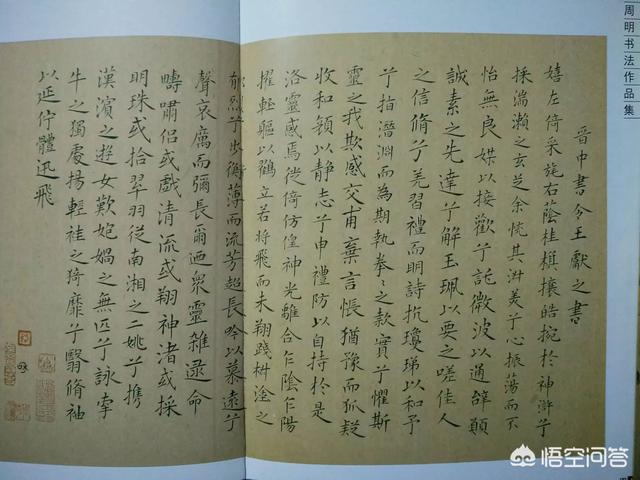 周明书法作品集
晋中書令王獻之書
嬉左倚采旄右蔭桂旗攘皓捥於神滸兮
採湍瀨之玄芝余悦其淑美兮心振蕩而不
怡無良媒以接歡兮託微波以通辭願
誠素之先達兮解玉珮以要之嗟佳人
之信脩兮羌習禮而明詩抗瓊珶以和予
兮指潛淵而為期執拳〻之款實兮懼斯
靈之我欺感交甫棄言悵猶豫而狐疑
收和顏以静志兮申禮防以自持於是
洛靈感焉徙倚仿偟神光離合乍陰乍陽
擢輕軀以鶴立若將飛而未翔踐椒塗之
郁烈兮步衡薄而流芳超長吟以慕遠兮
聲哀厲而彌長爾迺衆靈雜遝命
疇嘯侶或戲清流或翔神渚或採
明珠或拾翠羽從南湘之二姚兮攜
漢濱之遊女歎匏媧之無匹兮詠牽
牛之獨處揚輕袿之猗靡兮翳脩袖
以延佇體迅飛
悟空问答